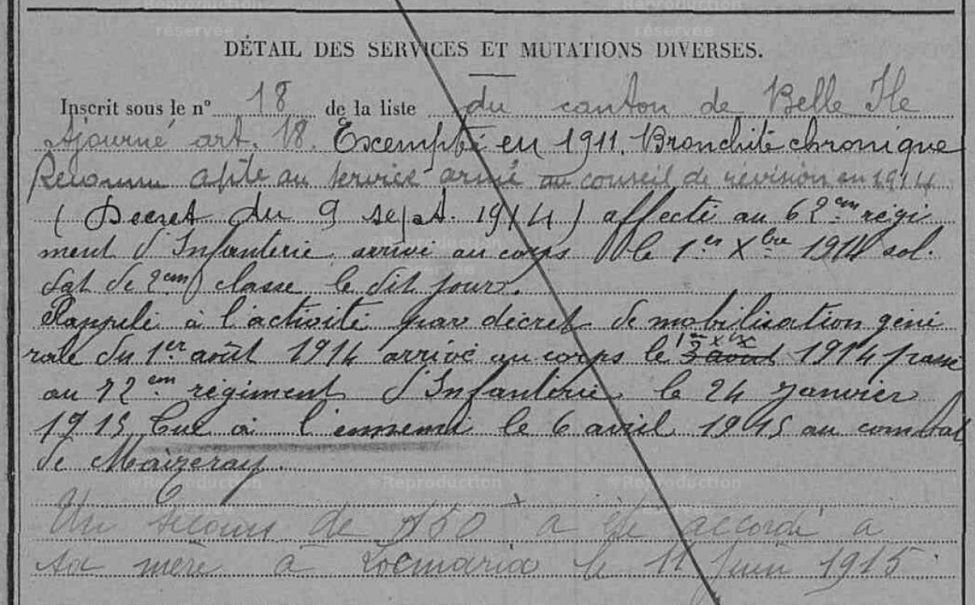 DÉTAIL DES SERVICES ET MUTATIONS DIVERSES.
Inscrit sous le n° 18 de la liste du canton de Belle Ile
Ajourné art. 18. Exempté en 1911. Bronchite chronique
Reconnu apte au service armé au conseil de revision en 1914
(Decret du 9 sept. 1914) affecté au 62em régi
ment d'Infanterie arrivé au corps le 1er Xbre 1914 sol.
dat de 2em classe le dit jour.
Rappelé à l'activité par décret de mobilisation géné
1er Xbre
rale du 1er août 1914 arrivé au corps le 3 août 1914 passé
au 72em régiment d'Infanterie le 24 Janvier
1915 Tué à l'ennemi le 6 avril 1915 au combat
de Maizeray.
Un secours de 150 a été accordé a
sa mère à Locmaria le 11 Juin 1915.